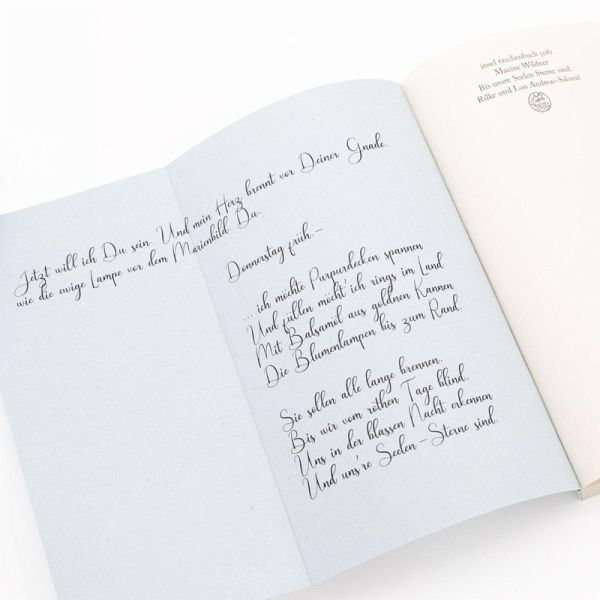 Jetzt will ich Du sein. Und mein Herz brennt vor Deiner Gnade,
wie die ewige Lampe vor dem Marienbild. Du.
Donnerstag früh.–
... ich möchte Purpurdecken spannen
Und füllen möcht' ich rings im Land
Mit Balsamöl aus goldnen Kannen
Die Blumenlampen bis zum Rand.
Sie sollen alle lange brennen,
Bis wir vom rothen Tage blind.
Uns in der blassen Nacht erkennen
Und uns're Seelen – Sterne sind.
insel taschenbuch 5081
Maxine Wildner
Bis unsre Seelen Sterne sind.
Rilke und Lou Andreas-Salomé